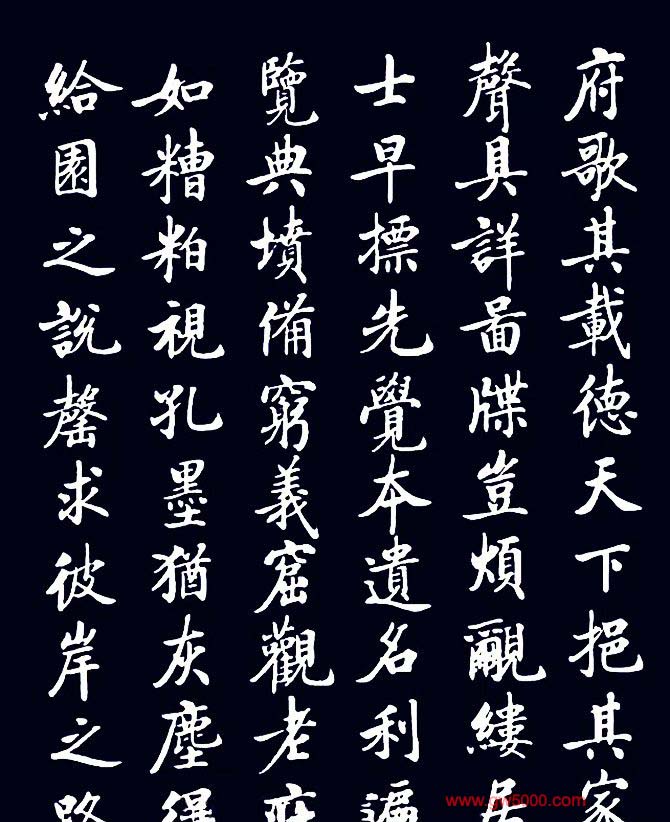 府歌其載德天下挹其家
聲具詳啚牒豈煩覼縷居
士早標先覺本遺名利遍
覽典墳備窮義窟觀老
如糟粕視孔墨猶灰塵得
給園之說罄求彼岸之路